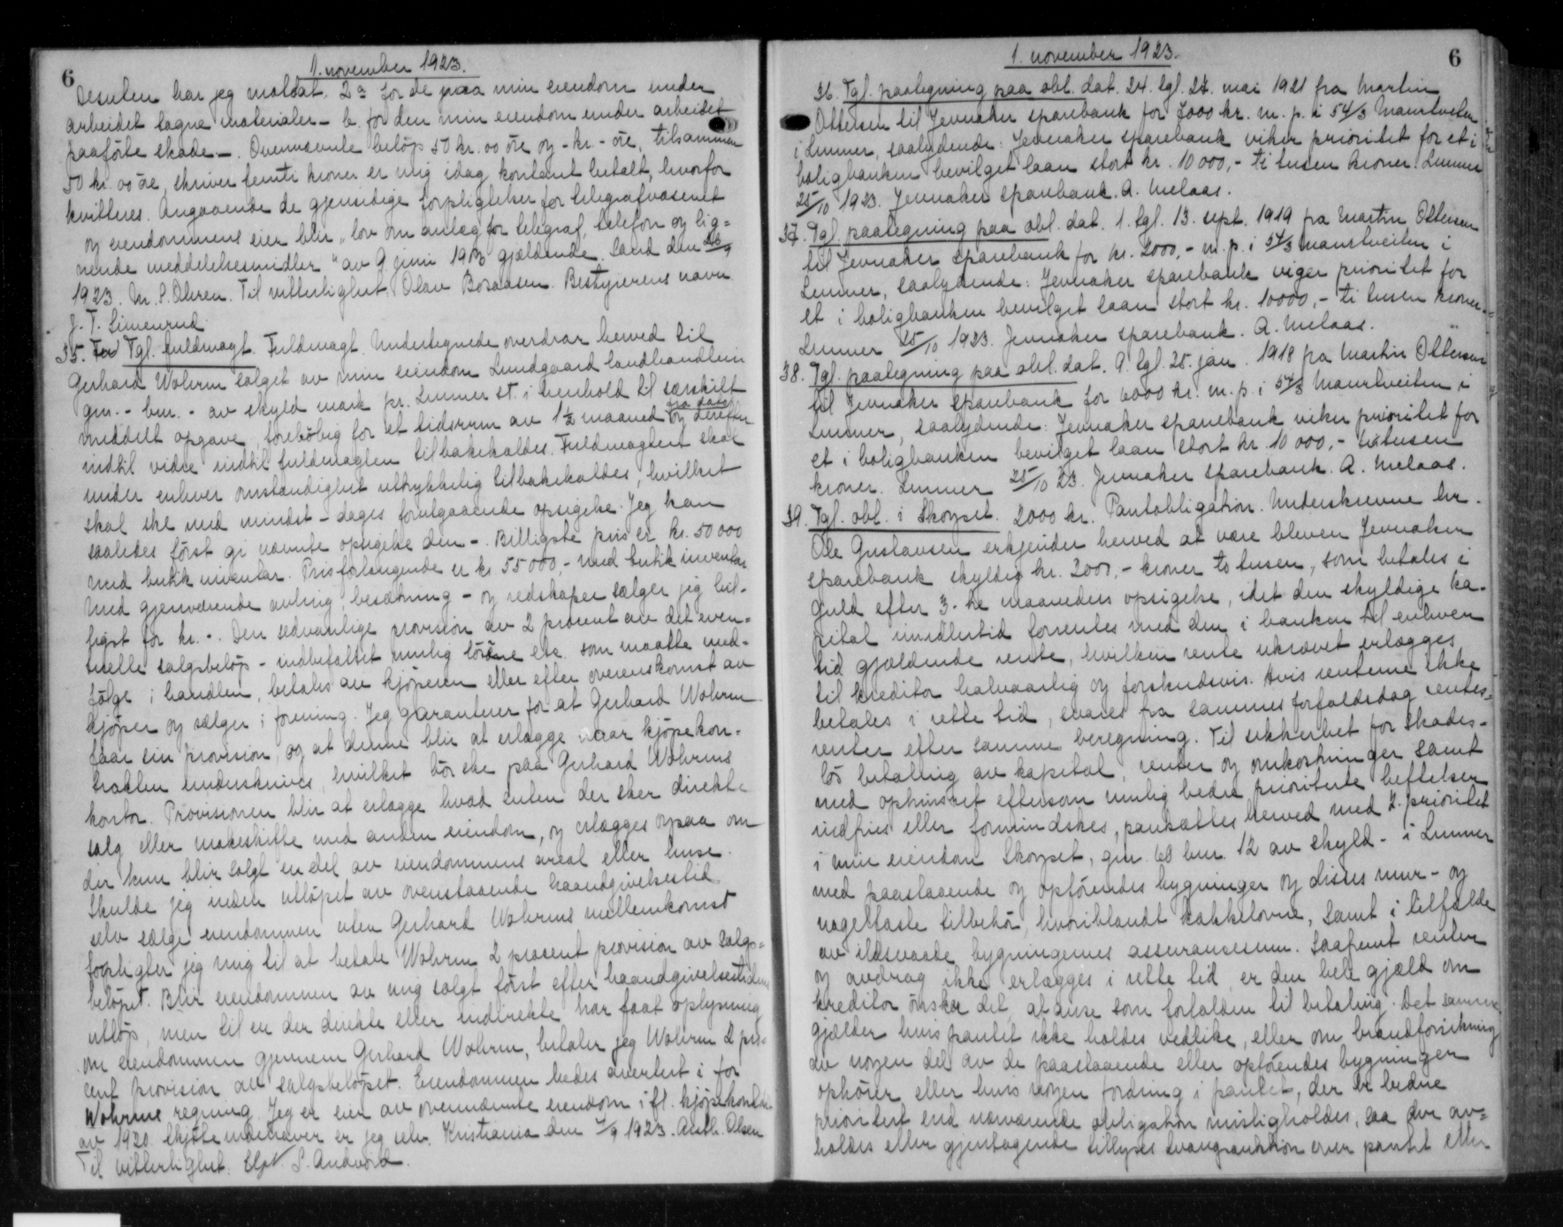 6
1. november 1923.
Desuten har jeg mottat. 2a for de paa min eiendom under
arbeidet tagne materialer - b. for den min eiendom under arbeidet
paaförte skade -. Ovennevnte belöp 50 kr. 00 öre og - kr - öre, tilsammen
50 kr. 00 öre, skriver femti kroner er mig idag kontant betalt, hvorfor
kvitteres. Angaaende de gjensidige forpligtelser for telegrafvæsenet
og eiendommens eier blir "lov om anlæg for telegraf, telefon og lig=
nende meddelelsesmidler" av 9 juni 1903 gjældende. Land den 26/9
1923. M. P. Olsen. Til vitterlighet. Olav Boraasen. Bestyrerens navn
J. T. Simenrud.
35. Tgl. fuldmagt. Fuldmagt. Undertegnede overdrar herved til
Gerhard Wohrm salget av min eiendom Lundgaard landhandleri
gnr. - bnr. - av skyld mark pr. Lunner st. i henhold til særskilt
meddelt opgave, forelöbig for et tidsrum av 1½ maaned fra dato og derefter
indtil videre indtil fuldmagten tilbakekaldes. Fuldmagten skal
under enhver omstændighet uttrykkelig tilbakekaldes, hvilket
skal ske med mindst - dages forutgaaende opsigelse. Jeg kan
saaledes först gi nævnte opsigelse den -. Billigste pris er kr. 50 000
med butik inventar. Prisforlangende er kr 55 000,- med butik inventar
Med gjenværende avling, besætning - og redskaper sælger jeg bil-
ligst for kr. -. Den sedvanlige provision av 2 procent av det even=
tuelle salgsbelöp - indbefattet mulig lösöre etc. som maatte med-
fölge i handlen, betales av kjöperen eller efter overenskomst av
kjöper og sælger i forening. Jeg garanterer for at Gerhard Wohrm
faar sin provision, og at denne blir at erlægge naar kjöpekon=
trakten underskrives, hvilket bör ske paa Gerhard Wohrms
kontor. Provisionen blir at erlægge hvad enten der sker direkte
salg eller makeskifte med anden eiendom, og erlægges ogsaa om
der kun blir solgt en del av eiendommens areal eller huse.
Skulde jeg inden utlöpet av ovenstaaende haandgivelsestid
selv sælge eiendommen uten Gerhard Wohrms mellemkomst
forpligter jeg mig til at betale Wohrm 2 procent provision av salgs=
belöpet. Blir eiendommen av mig solgt först efter haandgivelsestidens
utlöp, men til en der direkte eller indirekte har faat oplysning
om eiendommen gjennem Gerhard Wohrm, betaler jeg Wohrm 2 pro=
cent provision av salgsbelöpet. Eiendommen bedes avertert i for
Wohrms regning. Jeg er eier av ovennævnte eiendom ifl. kjöpekontrakt
av 1920. Skjöteutsteder er jeg selv. Kristiania den 7/9 1923. Olsen
Til vitterlighet. S. Andvord.
1. november 1923.
6
36. Tgl. paategning paa obl. dat. 24. tgl. 28. mai 1921 fra Martin
Ottersen til Jevnaker sparebank for 7000 kr. m. p. i 54/3 Maurtveiten
i Lunner, saalydende: Jevnaker sparebank viker prioritet for et i
boligbanken bevilget laan stort kr. 10 000,- ti tusen kroner. Lunner
25/10 1923. Jevnaker sparebank. A. Melaas.
37. Tgl. paategning paa obl. dat. 1. tgl. 13. sept. 1919 fra Martin Ottersen
til Jevnaker sparebank for kr. 2000,- m. p. i 54/3 Maurtveiten i
Lunner, saalydende: Jevnaker sparebank viger prioritet for
et i boligbanken bevilget laan stort kr. 10000,- ti tusen kroner.-
Lunner 25/10 1923. Jevnaker sparebank. A. Melaas.
38. Tgl. paategning paa obl. dat. 9. tgl. 25. jan. 1918 fra Martin Ottersen
til Jevnaker sparebank for 6000 kr. m. p. i 54/3 Maurtveiten i
Lunner, saalydende: Jevnaker sparebank viker prioritet for
et i boligbanken bevilget laan stort kr 10 000,- titusen
kroner. Lunner 25/10 23. Jevnaker sparebank. A. Melaas.
39. Tgl. obl. i Skøyset. 2000 kr. Pantobligation. Underskrevne hr.
Ole Gustavsen erkjender herved at være bleven Jevnaker
sparebank skyldig kr. 2000,- kroner to tusen, som betales i
guld efter 3. tre maaneders opsigelse, idet den skyldige ka-
pital imidlertid forrentes med den i banken til enhver
tid gjældende rente, hvilken rente ukrævet erlægges
til kreditor halvaarlig og forskudsvis. Hvis renterne ikke
betales i rette tid, svares fra sammes forfaldsdag rentes=
renter efter samme beregning. Til sikkerhet for skades-
lös betaling av kapital, renter og omkostninger samt
med opkinsret eftersom mulig bedre prioriterte heftelser
indfries eller formindskes, pantsættes herved med 2. prioritet
i min eiendom Skøyset, gnr. 60 bnr. 12 av skyld - i Lunner
med paastaaende og opförendes bygninger og disses mur- og
nagelfaste tilbehör, hvoriblandt kakkelovne, samt i tilfælde
av ildsvaade bygningernes assurancesum. Saafremt renter
og avdrag ikke erlægges i rette tid, er den hele gjæld om
kreditor önsker det, at anse som forfalden til betaling. Det samme
gjælder hvis pantet ikke holdes vedlike, eller om brandforsikring
av nogen del av de paastaaende eller opförendes bygninger
ophörer, eller hvis nogen fordring i pantet, der er bedre
prioritert end nærværende obligation misligholdes, saa der av=
holdes eller gjentagende tillyses tvangsauktion over pantet eller